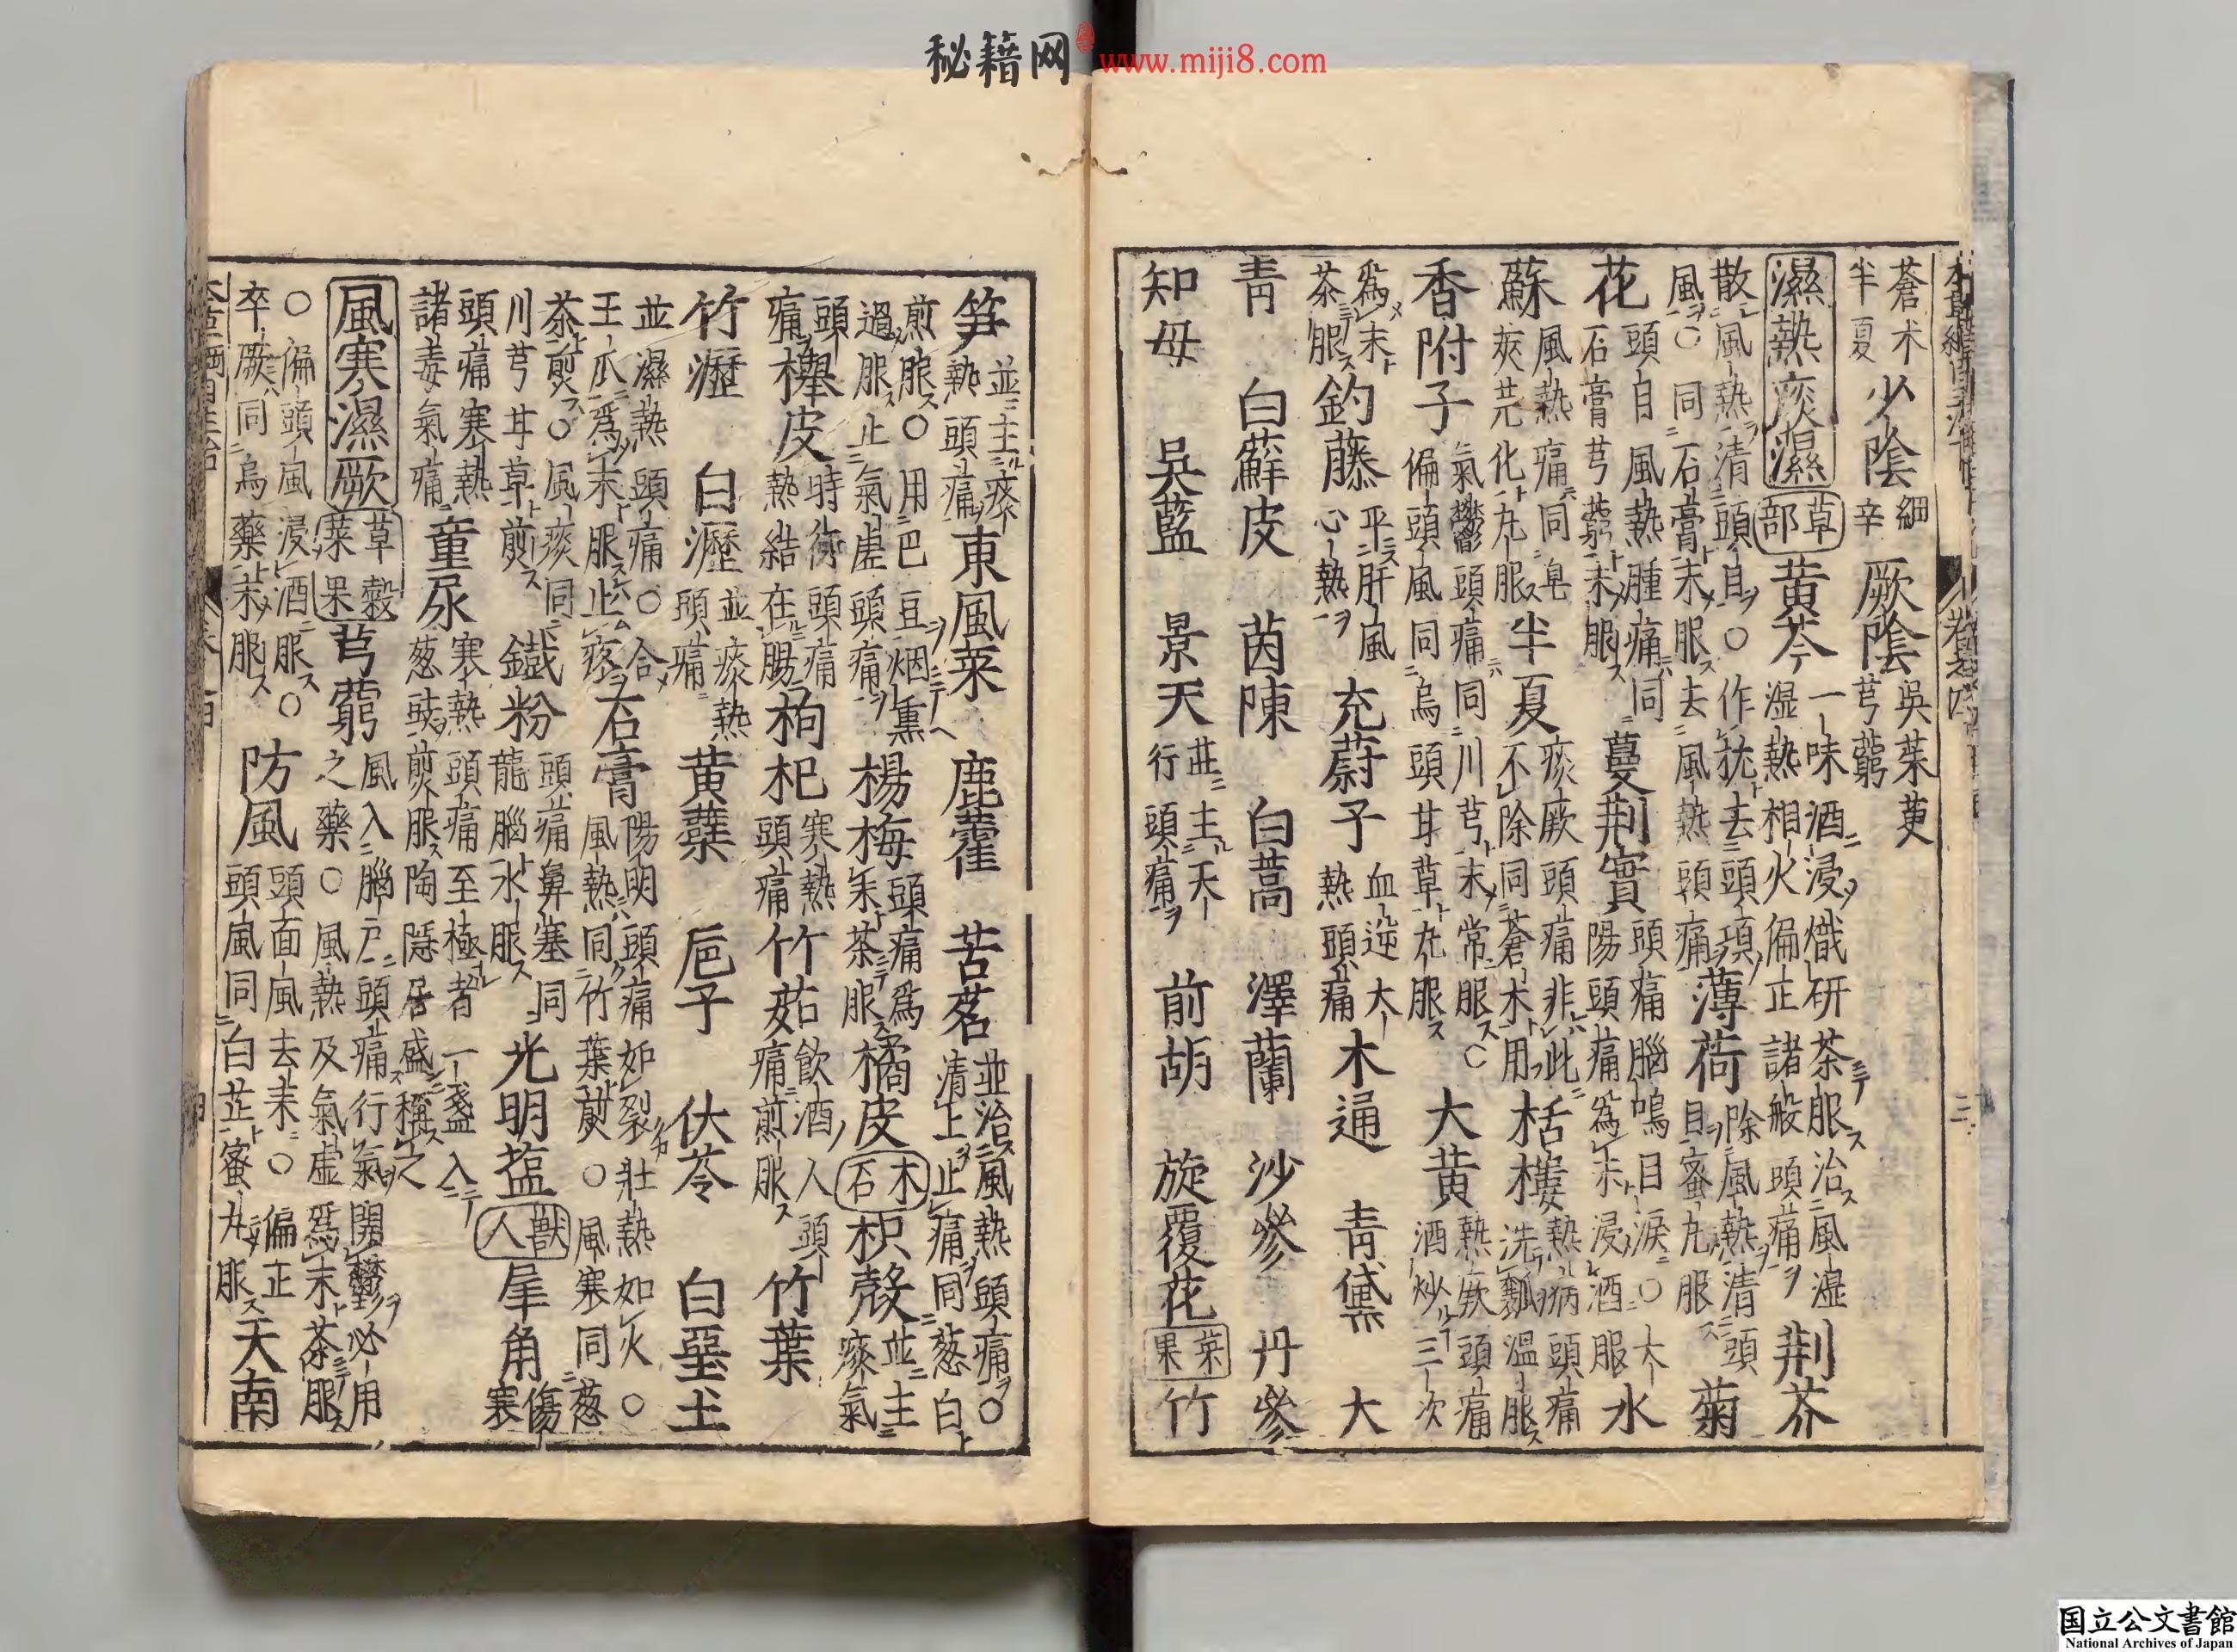 秘籍网 www.miji8.com
本草綱目主治 卷之四
蒼术半夏 少陰 細辛 厥陰 吳茱萸芎藭
濕熱痰濕 草部 黃芩 一味酒浸熾研茶服治風濕濕熱相火偏正諸般頭痛 荊芥
散風熱清頭目○作枕去頭項風○同石膏末服去風熱頭痛 薄荷 除風熱清頭目蜜丸服 菊
花 頭目風熱腫痛同石膏芎藭末服 蔓荊實 頭痛腦鳴目淚○太陽頭痛為末浸酒服 水
蘇 風熱痛同皂莢芫化丸服 半夏 痰厥頭痛非此不除同蒼术用 栝樓 熱病頭痛洗瓤溫服
香附子 氣鬱頭痛同川芎末常服○偏頭風同烏頭甘草丸服 大黃 熱厥頭痛酒炒三次
為末茶服 釣藤 平肝風心熱 充蔚子 血逆大熱頭痛 木通 青黛 大
青 白蘚皮 茵陳 白蒿 澤蘭 沙參 丹參
知母 吳藍 景天 並主天行頭痛 前胡 旋覆花 菜果 竹
笋 並主痰熱頭痛 東風菜 鹿藿 苦茗 並治風熱頭痛○清上止痛同葱白
煎服○用巴豆烟熏過服止氣虛頭痛 楊梅 頭痛為末茶服 橘皮 木石 枳殼 並主痰氣
頭痛 櫸皮 時行頭痛熱結在腸 枸杞 寒熱頭痛 竹茹 飲酒人頭痛煎服 竹葉
竹瀝 白瀝 並痰熱頭痛 黃蘗 巵子 伏苓 白堊土
並濕熱頭痛○合王瓜為末服止疼 石膏 陽明頭痛如裂壯熱如火○風熱同竹葉煎○風寒同葱
茶煎○風痰同川芎甘草煎 鐵粉 頭痛鼻塞同龍腦水服 光明塩 獸人 犀角 傷寒
頭痛寒熱諸毒氣痛 童尿 寒熱頭痛至極者一盞入葱豉煎服陶隱居盛稱之
風寒濕厥 草穀菜果 芎藭 風入腦戶頭痛行氣開鬱必用之藥○風熱及氣虛為末茶服
○偏頭風浸酒服○卒厥同烏藥末服 防風 頭面風去来○偏正頭風同白芷蜜丸服 天南
国立公文書館
National Archives of Japan